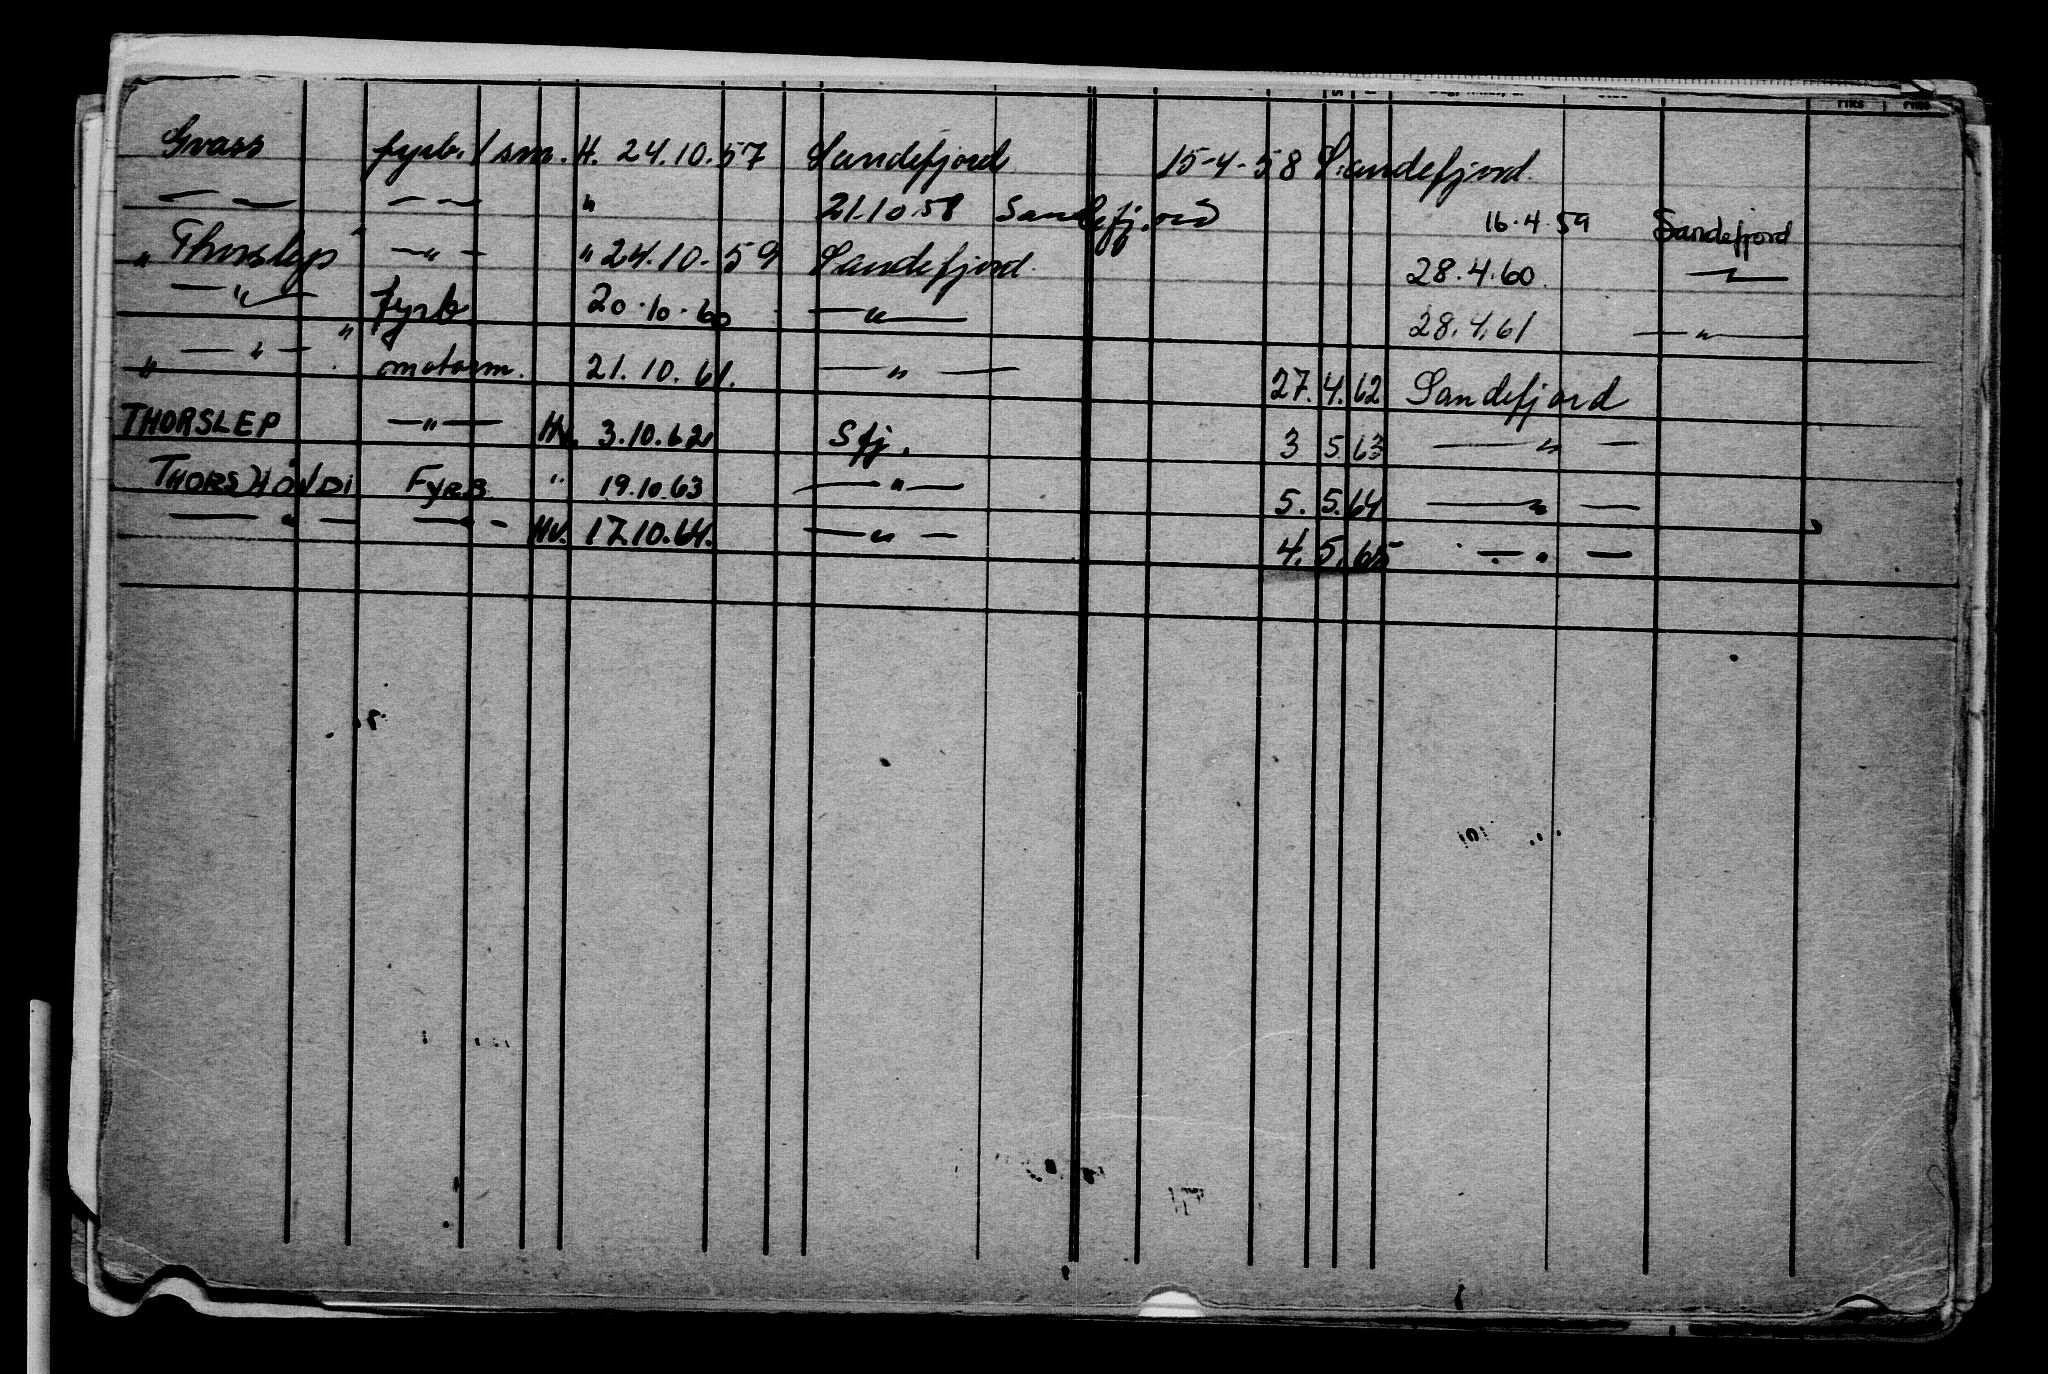 Gvass fyrb. / sm. H. 24.10.57 Sandefjord 15-4-58 Sandefjord.
— — — — " 21.10.58 Sandefjord 16.4.59 Sandefjord
" Thorslep " — " — " 24.10.59 Sandefjord. 28.4.60 — " —
— " — fyrb 20.10.60 — " — 28.4.61 — " —
" — " — " motorm. 21.10.61. — " — 27. 4. 62 Sandefjord
THORSLEP — " — Hv. 3.10.62 Sfj. 3 5. 63 — " —
THORSHØVDI FYRB " 19.10.63 — " — 5. 5. 64 — " —
— " — — " — Hv. 17.10.64. — " — 4. 5. 65 — " —